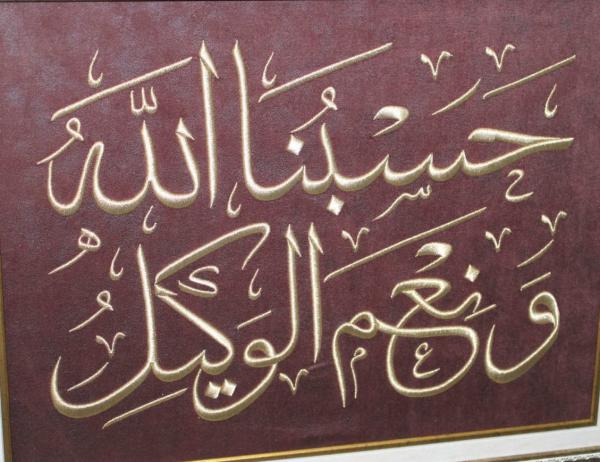 حَسْبُنَا اللّٰهُ
وَنِعْمَ الْوَكِيْلُ